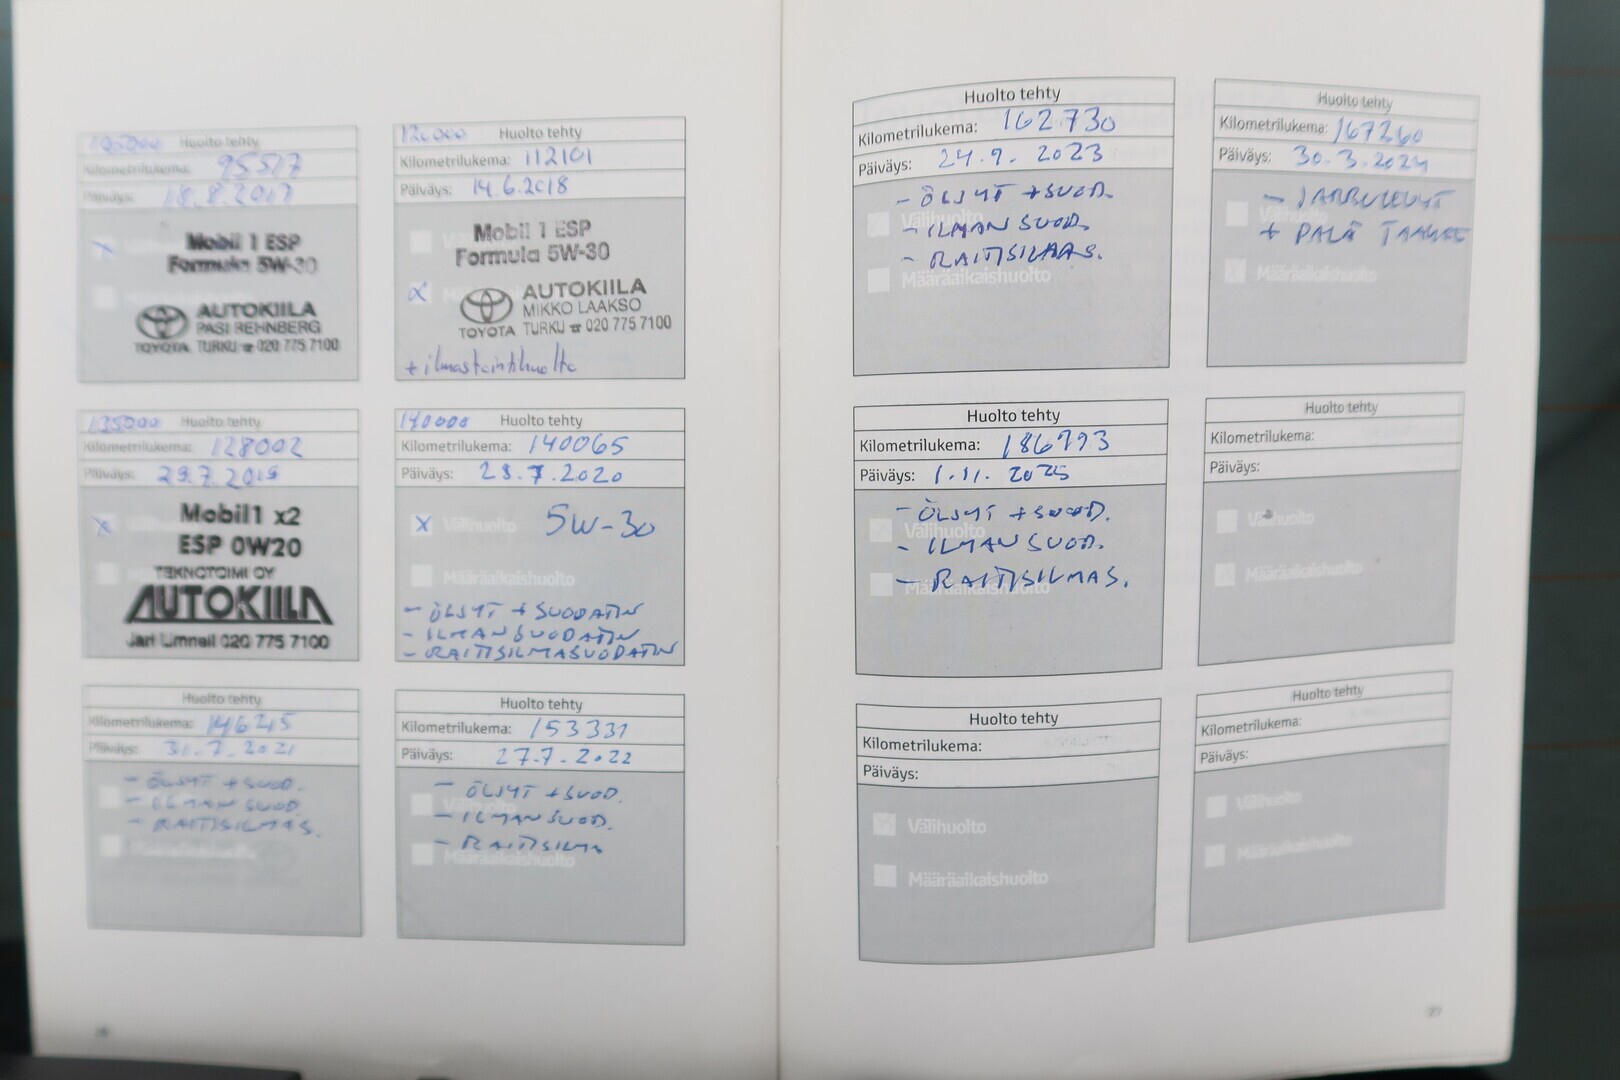 105000 Huolto tehty
Kilometrilukema: 95517
Päiväys: 18.8.2017
x
Mobil 1 ESP
Formula 5W-30
AUTOKIILA
PASI REHNBERG
TOYOTA TURKU ☎ 020 775 7100
120000 Huolto tehty
Kilometrilukema: 112101
Päiväys: 14.6.2018
Mobil 1 ESP
Formula 5W-30
x
AUTOKIILA
MIKKO LAAKSO
TOYOTA TURKU ☎ 020 775 7100
+ ilmastointihuolto
135000 Huolto tehty
Kilometrilukema: 128002
Päiväys: 29.7.2019
x
Mobil1 x2
ESP 0W20
TEKNOTOIMI OY
AUTOKIILA
Jari Limnell 020 775 7100
140000 Huolto tehty
Kilometrilukema: 140065
Päiväys: 28.7.2020
x Välihuolto 5W-30
Määräaikaishuolto
- ÖLJYT + SUODATIN
- ILMANSUODATIN
- RAITISILMASUODATIN
Huolto tehty
Kilometrilukema: 146245
Päiväys: 31.7.2021
- ÖLJYT + SUOD.
- ILMAN SUOD.
- RAITISILMAS.
Määräaikaishuolto
Huolto tehty
Kilometrilukema: 153331
Päiväys: 27.7.2022
- ÖLJYT + SUOD.
Välihuolto
- ILMANSUOD.
- RAITISILMA
Määräaikaishuolto
Huolto tehty
Kilometrilukema: 162730
Päiväys: 24.9.2023
- ÖLJYT + SUOD.
Välihuolto
- ILMAN SUOD.
- RAITISILMAS.
Määräaikaishuolto
Huolto tehty
Kilometrilukema: 167260
Päiväys: 30.3.2024
- JARRULEVYT
+ PALA TAAKSE
Määräaikaishuolto
Huolto tehty
Kilometrilukema: 186793
Päiväys: 1.11.2025
- ÖLJYT + SUOD.
Välihuolto
- ILMAN SUOD.
- RAITISILMAS.
Määräaikaishuolto
Huolto tehty
Kilometrilukema:
Päiväys:
Välihuolto
Määräaikaishuolto
Huolto tehty
Kilometrilukema:
Päiväys:
Välihuolto
Määräaikaishuolto
Huolto tehty
Kilometrilukema:
Päiväys:
Välihuolto
Määräaikaishuolto